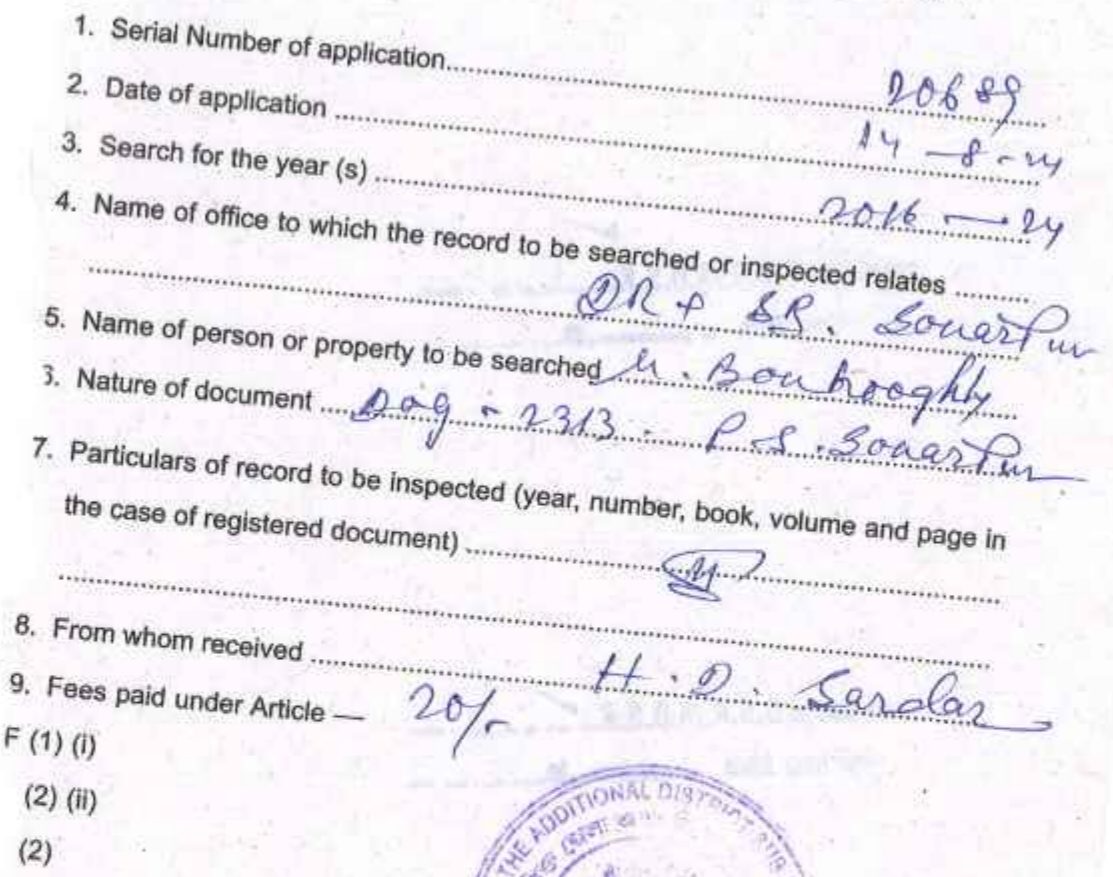 1. Serial Number of application.......... 20689
2. Date of application .......... 14-8-24
3. Search for the year (s) .......... 2016 — 24
4. Name of office to which the record to be searched or inspected relates ..........
.......... DR & SR. Sonarpur
5. Name of person or property to be searched M. Bonhooghly
6. Nature of document .... Dag - 2313. P.S. Sonarpur
7. Particulars of record to be inspected (year, number, book, volume and page in
the case of registered document) ..........
8. From whom received .......... H. D. Sardar
9. Fees paid under Article — 20/-
F (1) (i)
(2) (ii)
(2)
THE ADDITIONAL